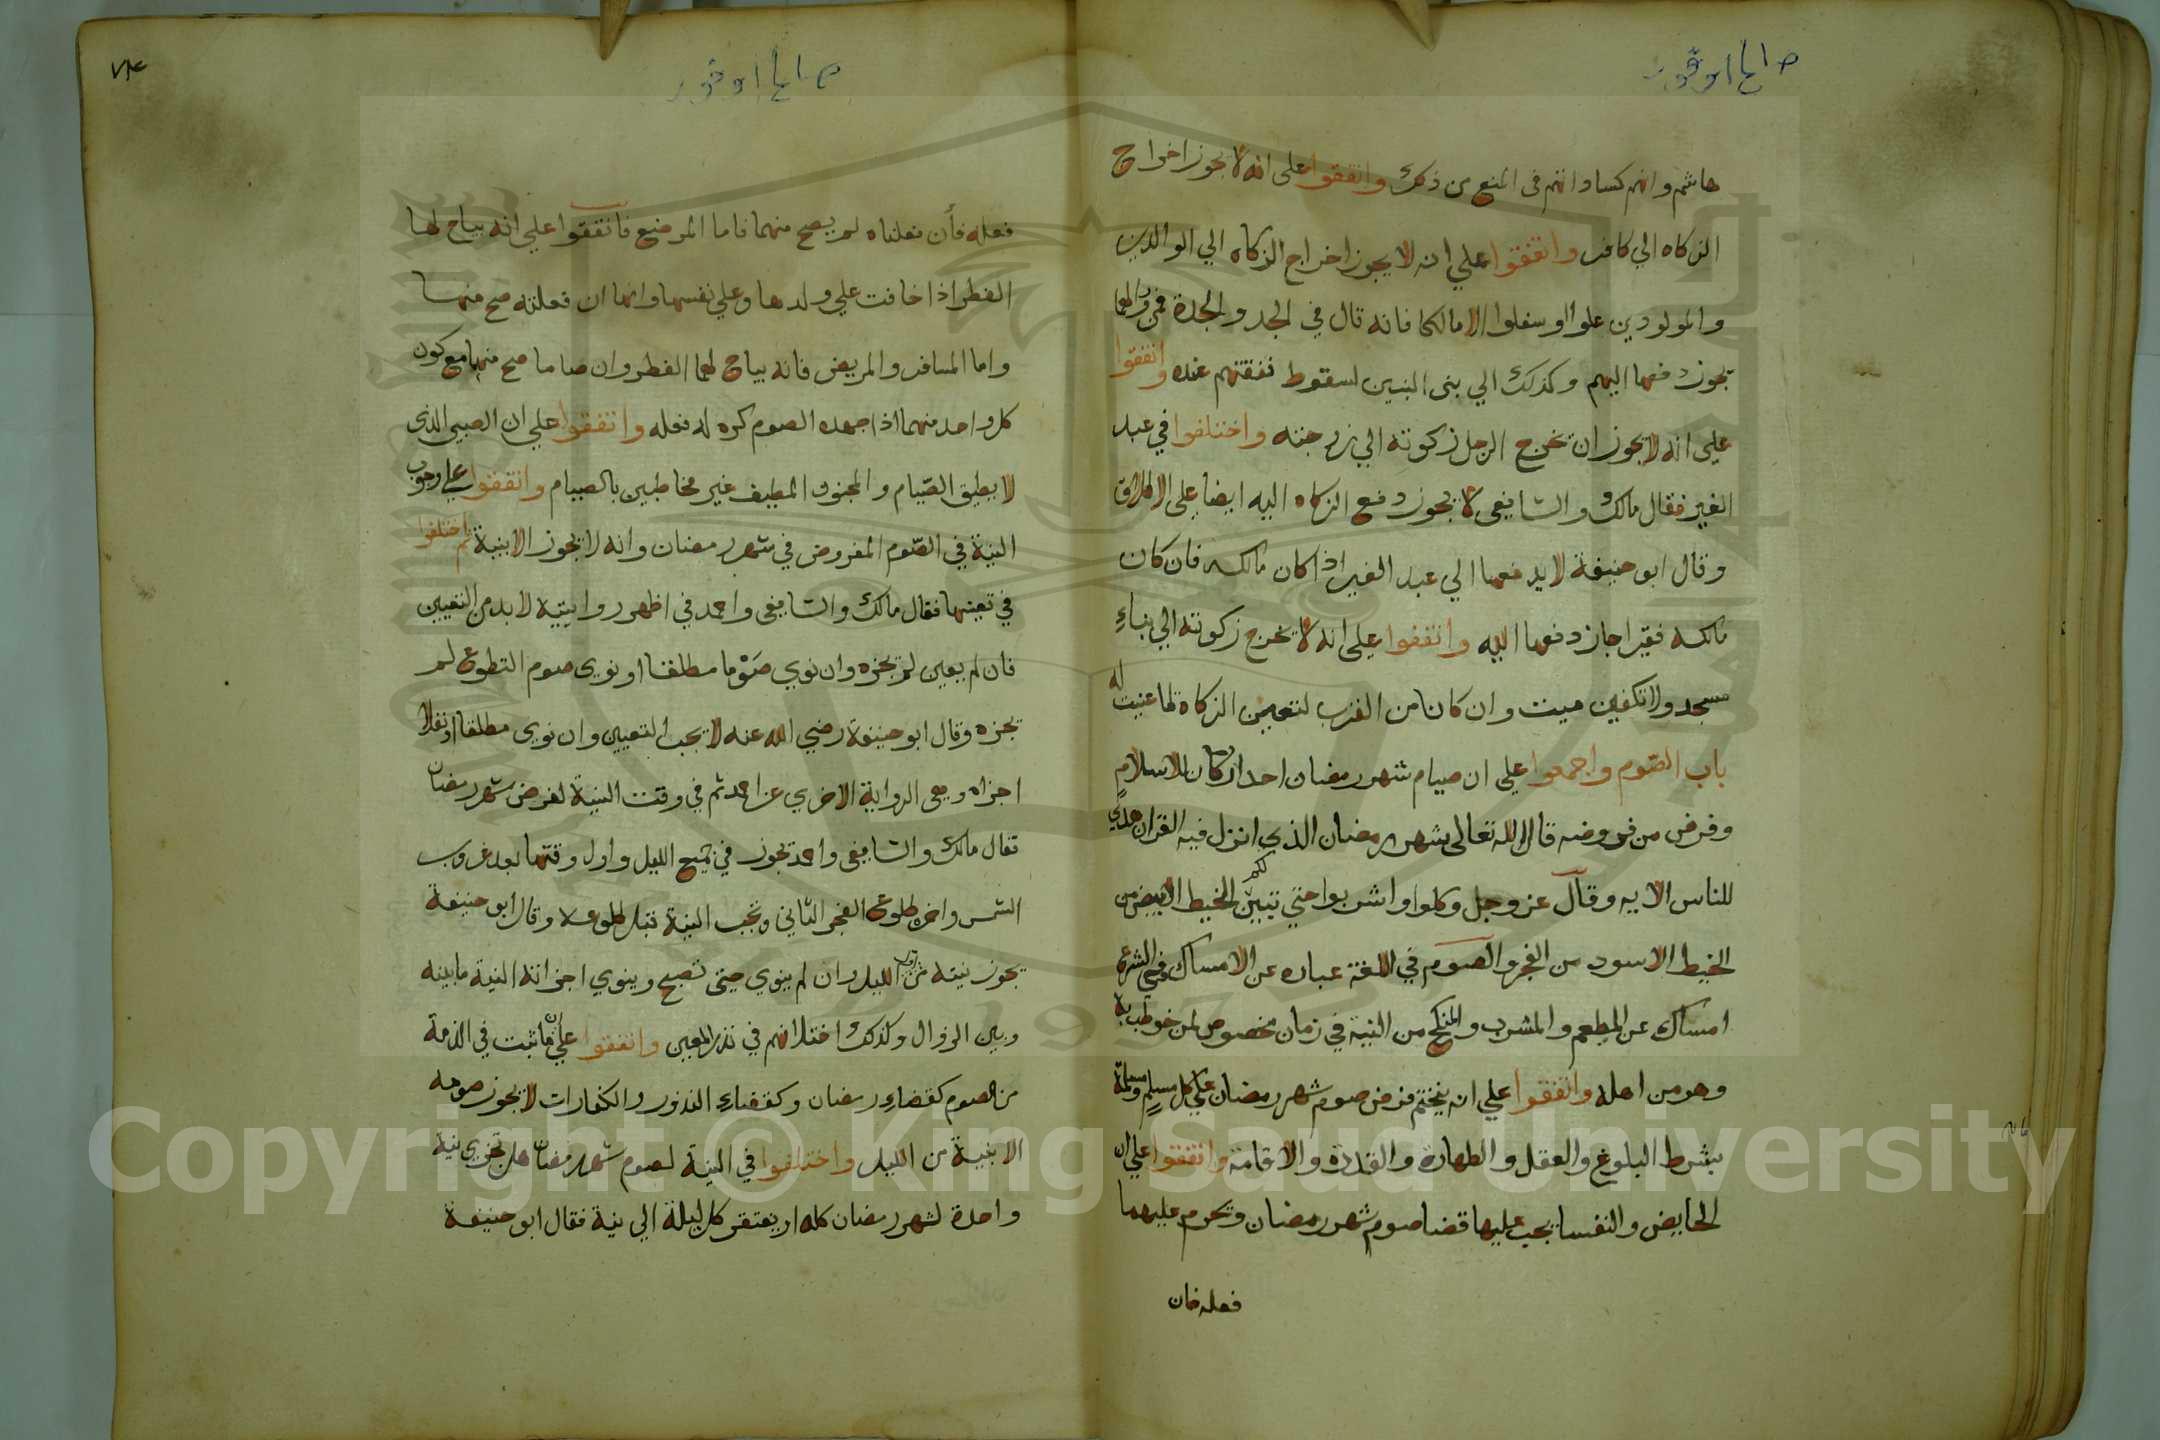 هاشم وانهم كساداتهم في المنع من ذلك واتفقوا على انه لا يجوز اخراج
الزكاه الي كافر واتفقوا علي انه لا يجوز اخراج الزكاه الي الوالدين
والمولودين علوا او سفلوا الا مالكا فانه قال في الجد والجدة فمن ورآهما
تجوز دفعها اليهم وكذلك الي بني البنين لسقوط نفقتهم عنده واتفقوا
علي انه لا يجوز ان تخرج الرجل زكوته الي زوجته واختلفوا في عبد
الغير فقال مالك والشافعي لا يجوز دفع الزكاه اليه ايضا علي الاطلاق
وقال ابو حنيفة لا يدفعها الي عبد الغير اذا كان مالكه فان كان
مالكه فقيرا جاز دفعها اليه واتفقوا علي انه لا تخرج زكوته الي بناءِ
مسجد ولا تكفين ميت وان كان من القرب لتعيين الزكاه لما عنيت له
باب الصّوم واجمعوا علي ان صيام شهر رمضان احد اركان الاسلام
وفرض من فروضه قال الله تعالى شهر رمضان الذي انزل فيه القرآن هدي
للناس الايه وقال عز وجل وكلوا واشربوا حتي تتبين لكم الخيط الابيض من
الخيط الاسود من الفجر والصوم في اللغة عباره عن الامساك وفي الشرع
امساك عن المطعم والمشرب والمنكح من النية في زمان مخصوص لمن خوطب به
وهو من اهله واتفقوا علي انه يتحتم فرض صوم شهر رمضان علي كل مسلم ومسلمة
بشرط البلوغ والعقل والطهارة والقدرة والاقامة واتفقوا علي ان
الحايض والنفسا يجب عليها قضا صوم شهر رمضان وتحرم عليهما
فعله فان
٧٣
فعله فأن فعلناه لم يصح منهما فاما المرضع فاتفقوا علي انه يباح لها
الفطر اذا خافت علي ولدها وعلي نفسها وانها ان فعلته صح منها
واما المسافر والمريض فانه يباح لهما الفطر وان صاما صح منهما مع كون
كل واحد منهما اذا جهده الصوم كره له فعله واتفقوا علي ان الصبي الذي
لا يطيق الصّيام والمجنون المطبق غير مخاطبين بالصيام واتفقوا علي وجوب
النية في الصّوم المفروض في شهر رمضان وانه لا يجوز الا بنية ثم اختلفوا
في تعينها فقال مالك والشافعي واحمد في اظهر روايتيه لا بد من التعيين
فان لم يعين لم تجزه وان نوي صَوْما مطلقا او نوي صوم التطوع لم
تجزه وقال ابو حنيفة رضي الله عنه لا يجب التعيين وان نوى مطلقا او نفلا
اجزاه وهي الرواية الاخري عن احمد ثم في وقت النية لفرض شهر رمضان
فقال مالك والشافعي واحمد تجوز في جميع الليل واول وقتها بعد غروب
الشمس واخره طلوع الفجر الثاني وتجب النية قبل طلوعه وقال ابو حنيفة
يجوز نيته من الليل وان لم ينوي حتى تصبح وينوي اجزاته النية ما بينه
وبين الزوال وكذلك اختلافهم في نذر المعين واتفقوا علي ان ما ثبت في الذمة
من الصوم كقضاءِ رمضان وكقضاءِ النذور والكفارات لا يجوز صومه
الا بنية من الليل واختلفوا في النية لصوم شهر رمضان هل تجزي نية
واحدة لشهر رمضان كله او يفتقر كل ليلة الي نية فقال ابو حنيفة
Copyright © King Saud University